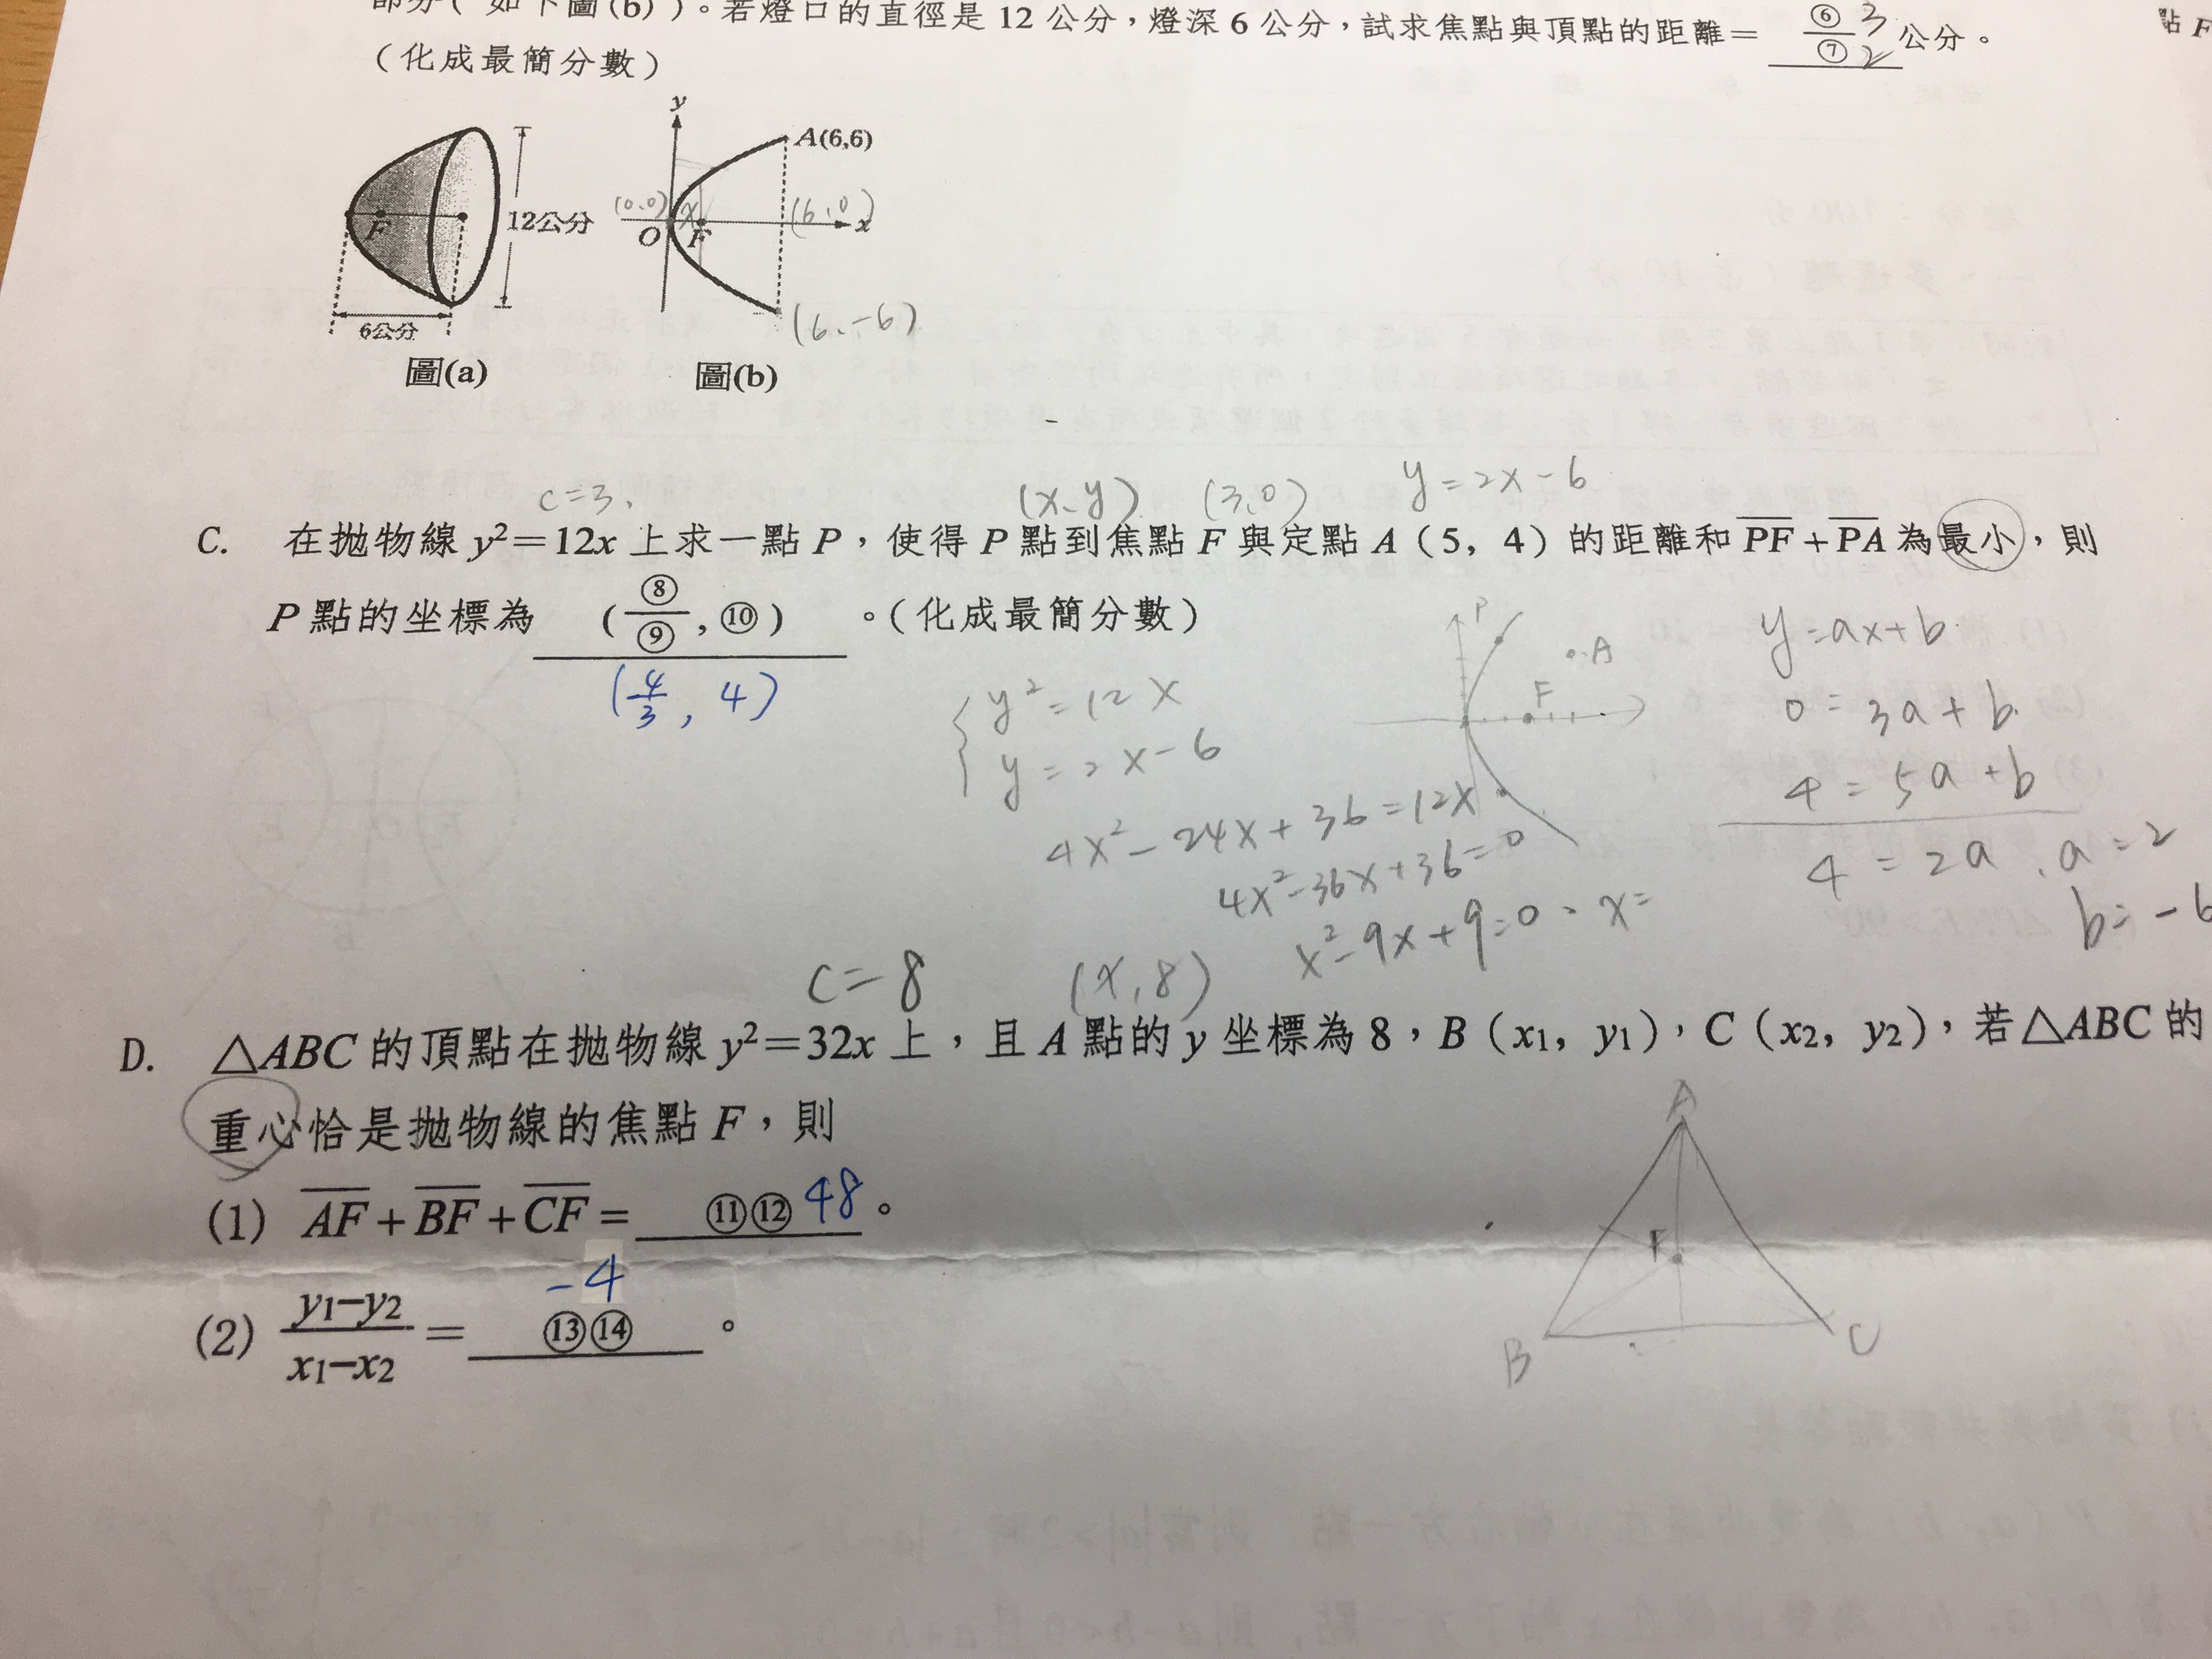 部分(如下圖(b))。若燈口的直徑是 12 公分,燈深 6 公分,試求焦點與頂點的距離= ⑥/⑦ 3/2 公分。
點 F
(化成最簡分數)
y
A(6,6)
12公分
(0,0)
x
(6,0)
x
F
O
F
6公分
(6,-6)
圖(a)
圖(b)
c=3,
(x,y)
(3,0)
y=2x-6
C. 在拋物線 y²=12x 上求一點 P,使得 P 點到焦點 F 與定點 A(5, 4)的距離和 PF+PA 為最小,則
P 點的坐標為 (⑧/⑨, ⑩) 。(化成最簡分數)
(4/3, 4)
y²=12x
y=2x-6
4x²-24x+36=12x
4x²-36x+36=0
x²-9x+9=0 x=
P
A
F
y=ax+b
0=3a+b
4=5a+b
4=2a, a=2
b=-6
c=8
(x,8)
D. △ABC 的頂點在拋物線 y²=32x 上,且 A 點的 y 坐標為 8,B(x₁, y₁),C(x₂, y₂),若△ABC 的
重心恰是拋物線的焦點 F,則
(1) AF+BF+CF= ⑪⑫ 48。
-4
(2) y₁-y₂/x₁-x₂ = ⑬⑭ 。
A
F
B
C